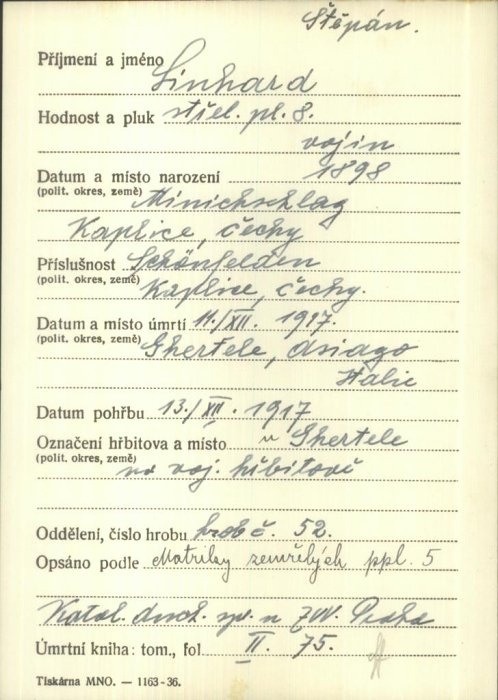 Štěpán.
Příjmení a jméno Linhard
Hodnost a pluk střel. pl. 8.
vojín
Datum a místo narození 1898
(polit. okres, země) Minichschlag
Kaplice, čechy
Příslušnost Schönfelden
(polit. okres, země) Kaplice, čechy.
Datum a místo úmrtí 11./XII. 1917.
(polit. okres, země) Ghertele, Asiago
Italie
Datum pohřbu 13./XII. 1917
Označení hřbitova a místo u Ghertele
(polit. okres, země) na voj. hřbitově
Oddělení, číslo hrobu hrob č. 52.
Opsáno podle Matriky zemřelých ppl. 5
Katol. duch. spr. u ZVV. Praha
Úmrtní kniha: tom., fol. II. 75.
Tiskárna MNO. — 1163-36.